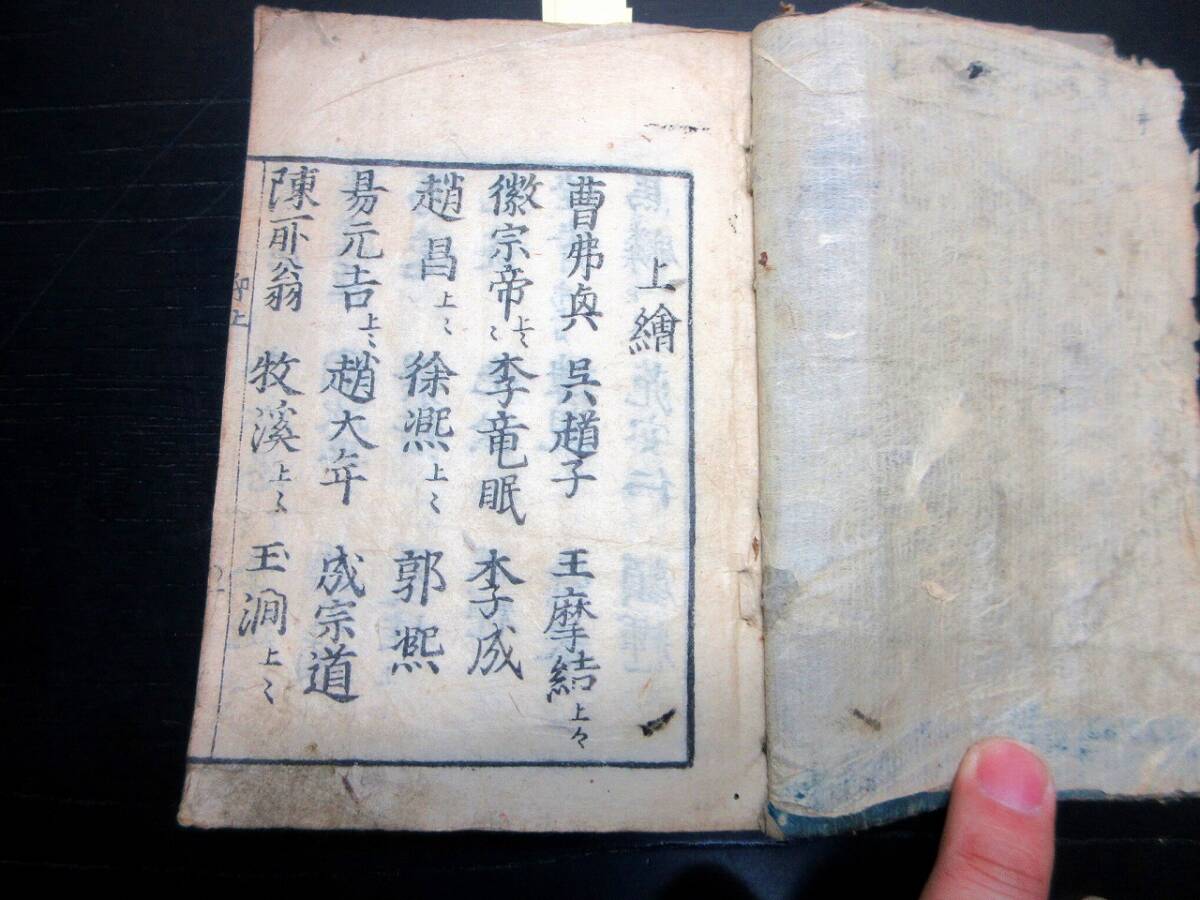 上繪
曹弗興 呉趙子 王摩結上々
徽宗帝上〻 李竜眠 李成
趙昌上〻 徐熈上〻 郭熈
易元吉上〻 趙大年 成宗道
陳所翁 牧溪上〻 玉澗上〻